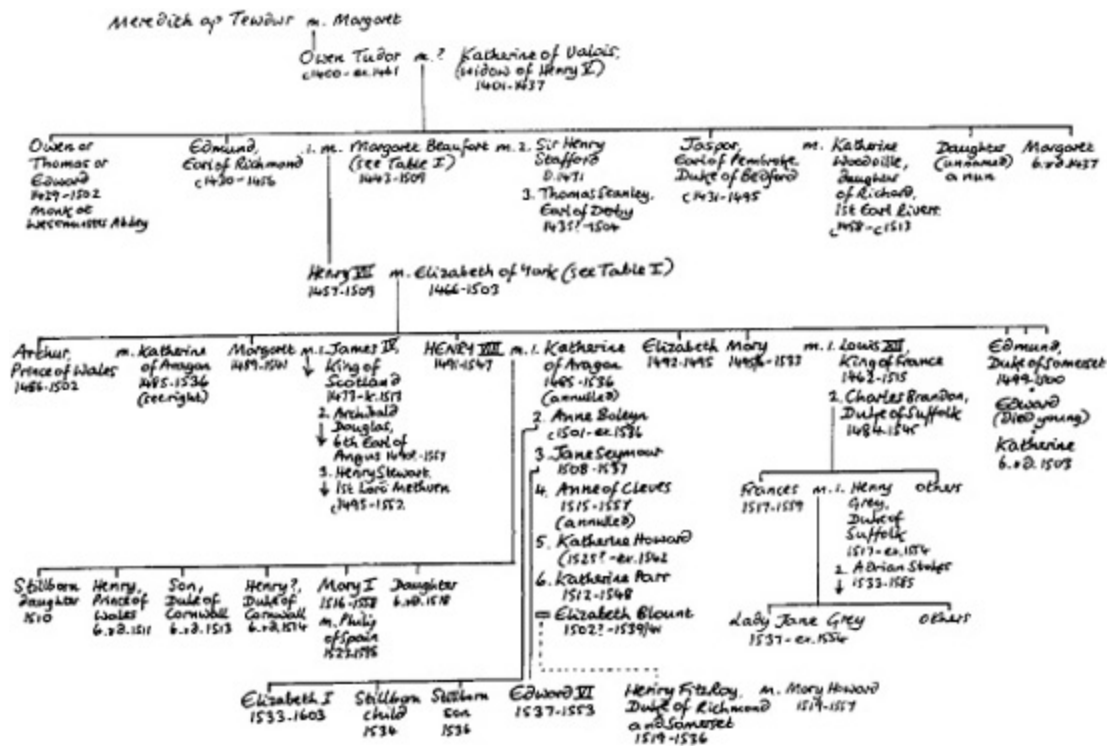 Meredith ap Tewdwr m. Margaret
Owen Tudor m.? Katherine of Valois,
c1400-ex.1461 (widow of Henry V)
1401-1437
Owen or
Thomas or
Edward
1429-1502
Monk at
Westminster Abbey
Edmund,
Earl of Richmond
c1430-1456
1. m. Margaret Beaufort m. 2. Sir Henry
(see Table I) Stafford
1443-1509 D.1471
3. Thomas Stanley,
Earl of Derby
1435?-1504
Jasper,
Earl of Pembroke,
Duke of Bedford
c1431-1495
m. Katherine
Woodville,
daughter
of Richard,
1st Earl Rivers
c1458-c1513
Daughter
(unnamed)
a nun
Margaret
b.&d.1437
Henry VII m. Elizabeth of York (see Table I)
1457-1509 1466-1503
Arthur,
Prince of Wales
1486-1502
m. Katherine
of Aragon
1485-1536
(see right)
Margaret m. 1. James IV,
1489-1541 King of
Scotland
1473-k.1513
2. Archibald
Douglas,
6th Earl of
Angus
3. Henry Stewart
1st Lord Methven
c1495-1552
HENRY VIII m. 1. Katherine
1491-1547 of Aragon
1485-1536
(annulled)
2. Anne Boleyn
c1501-ex.1536
3. Jane Seymour
1508-1537
4. Anne of Cleves
1515-1557
(annulled)
5. Katherine Howard
(1525?-ex.1542
6. Katherine Parr
1512-1548
= Elizabeth Blount
1502?-1539/41
Elizabeth
1492-1495
Mary m. 1. Louis XII,
King of France
1462-1515
2. Charles Brandon,
Duke of Suffolk
1484-1545
Edmund,
Duke of Somerset
1499-1500
Edward
(Died young)
Katherine
b.&d.1503
Frances m. 1. Henry
1517-1559 Grey,
Duke of
Suffolk
1517-ex.1554
2. Adrian Stokes
1533-1585
Others
Lady Jane Grey
1537-ex.1554
Others
Stillborn
daughter
1510
Henry,
Prince of
Wales
b.&d.1511
Son,
Duke of
Cornwall
b.&d.1513
Henry?,
Duke of
Cornwall
b.&d.1514
Mary I
1516-1558
m. Philip
of Spain
Daughter
b.&d.1518
Elizabeth I
1533-1603
Stillborn
child
1534
Stillborn
son
1536
Edward VI
1537-1553
Henry FitzRoy, m. Mary Howard
Duke of Richmond 1519-1557
and Somerset
1519-1536